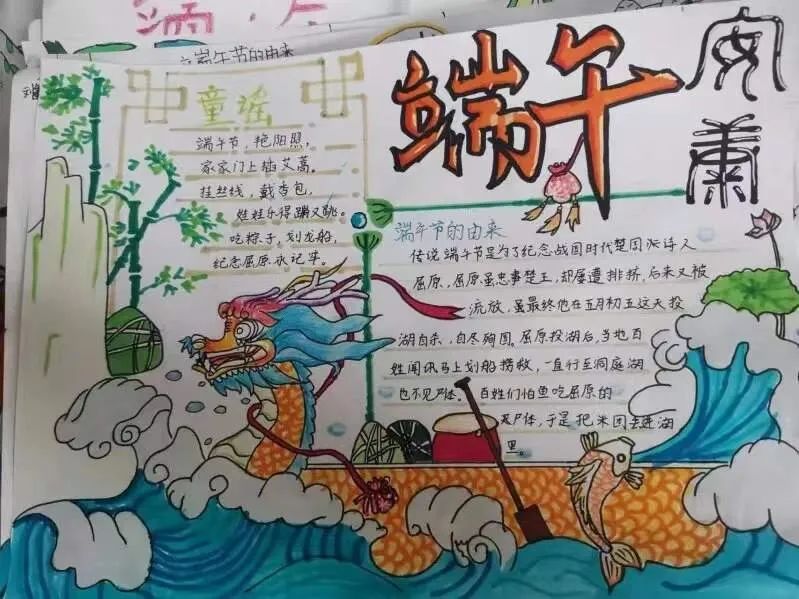 端午节的由来
端午
安康
童谣
端午节，艳阳照，
家家门上插艾蒿。
挂丝线，戴香包，
娃娃乐得蹦又跳。
吃粽子，划龙船，
纪念屈原永记牢。
端午节的由来
传说端午节是为了纪念战国时代楚国诗人
屈原，屈原虽忠事楚王，却屡遭排挤，后来又被
流放，虽最终他在五月初五这天投
湖自杀，自尽殉国。屈原投湖后，当地百
姓闻讯马上划船捞救，一直行至洞庭湖
也不见尸体。百姓们怕鱼吃屈原的
尸体，于是把米团丢进湖
里。